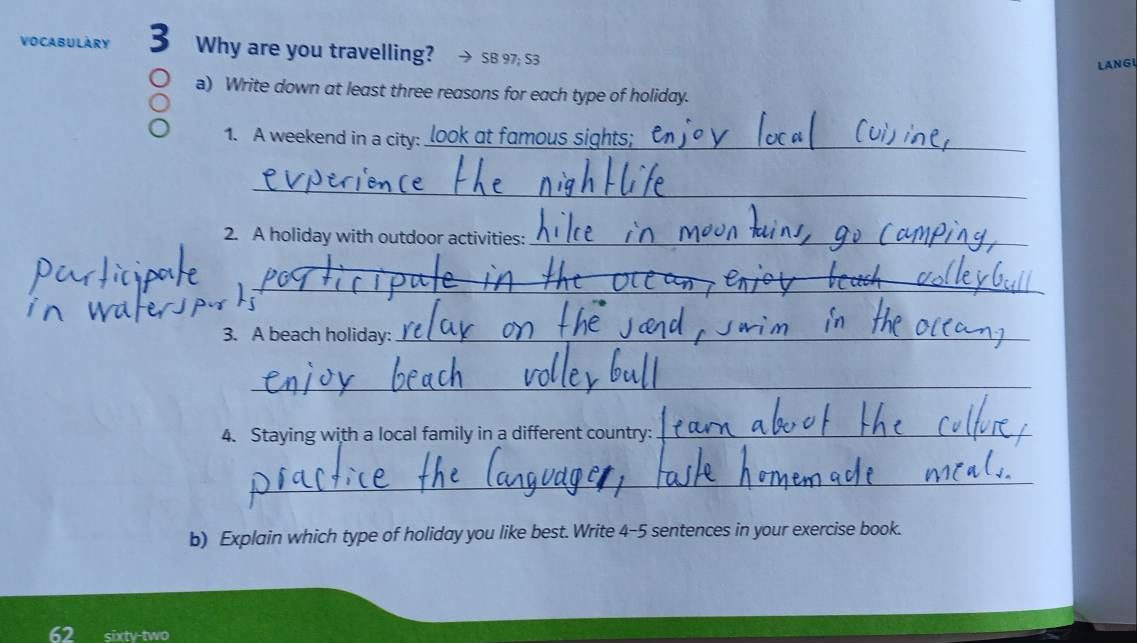 VOCABULARY 3 Why are you travelling? → SB 97; S3
LANGU
a) Write down at least three reasons for each type of holiday.
1. A weekend in a city: look at famous sights; enjoy local cuisine,
experience the nightlife
2. A holiday with outdoor activities: hike in mountains, go camping,
participate
in watersports
participate in the ocean, enjoy beach volleyball
3. A beach holiday: relax on the sand, swim in the ocean,
enjoy beach volleyball
4. Staying with a local family in a different country: learn about the culture,
practice the language, taste homemade meals.
b) Explain which type of holiday you like best. Write 4–5 sentences in your exercise book.
62 sixty-two